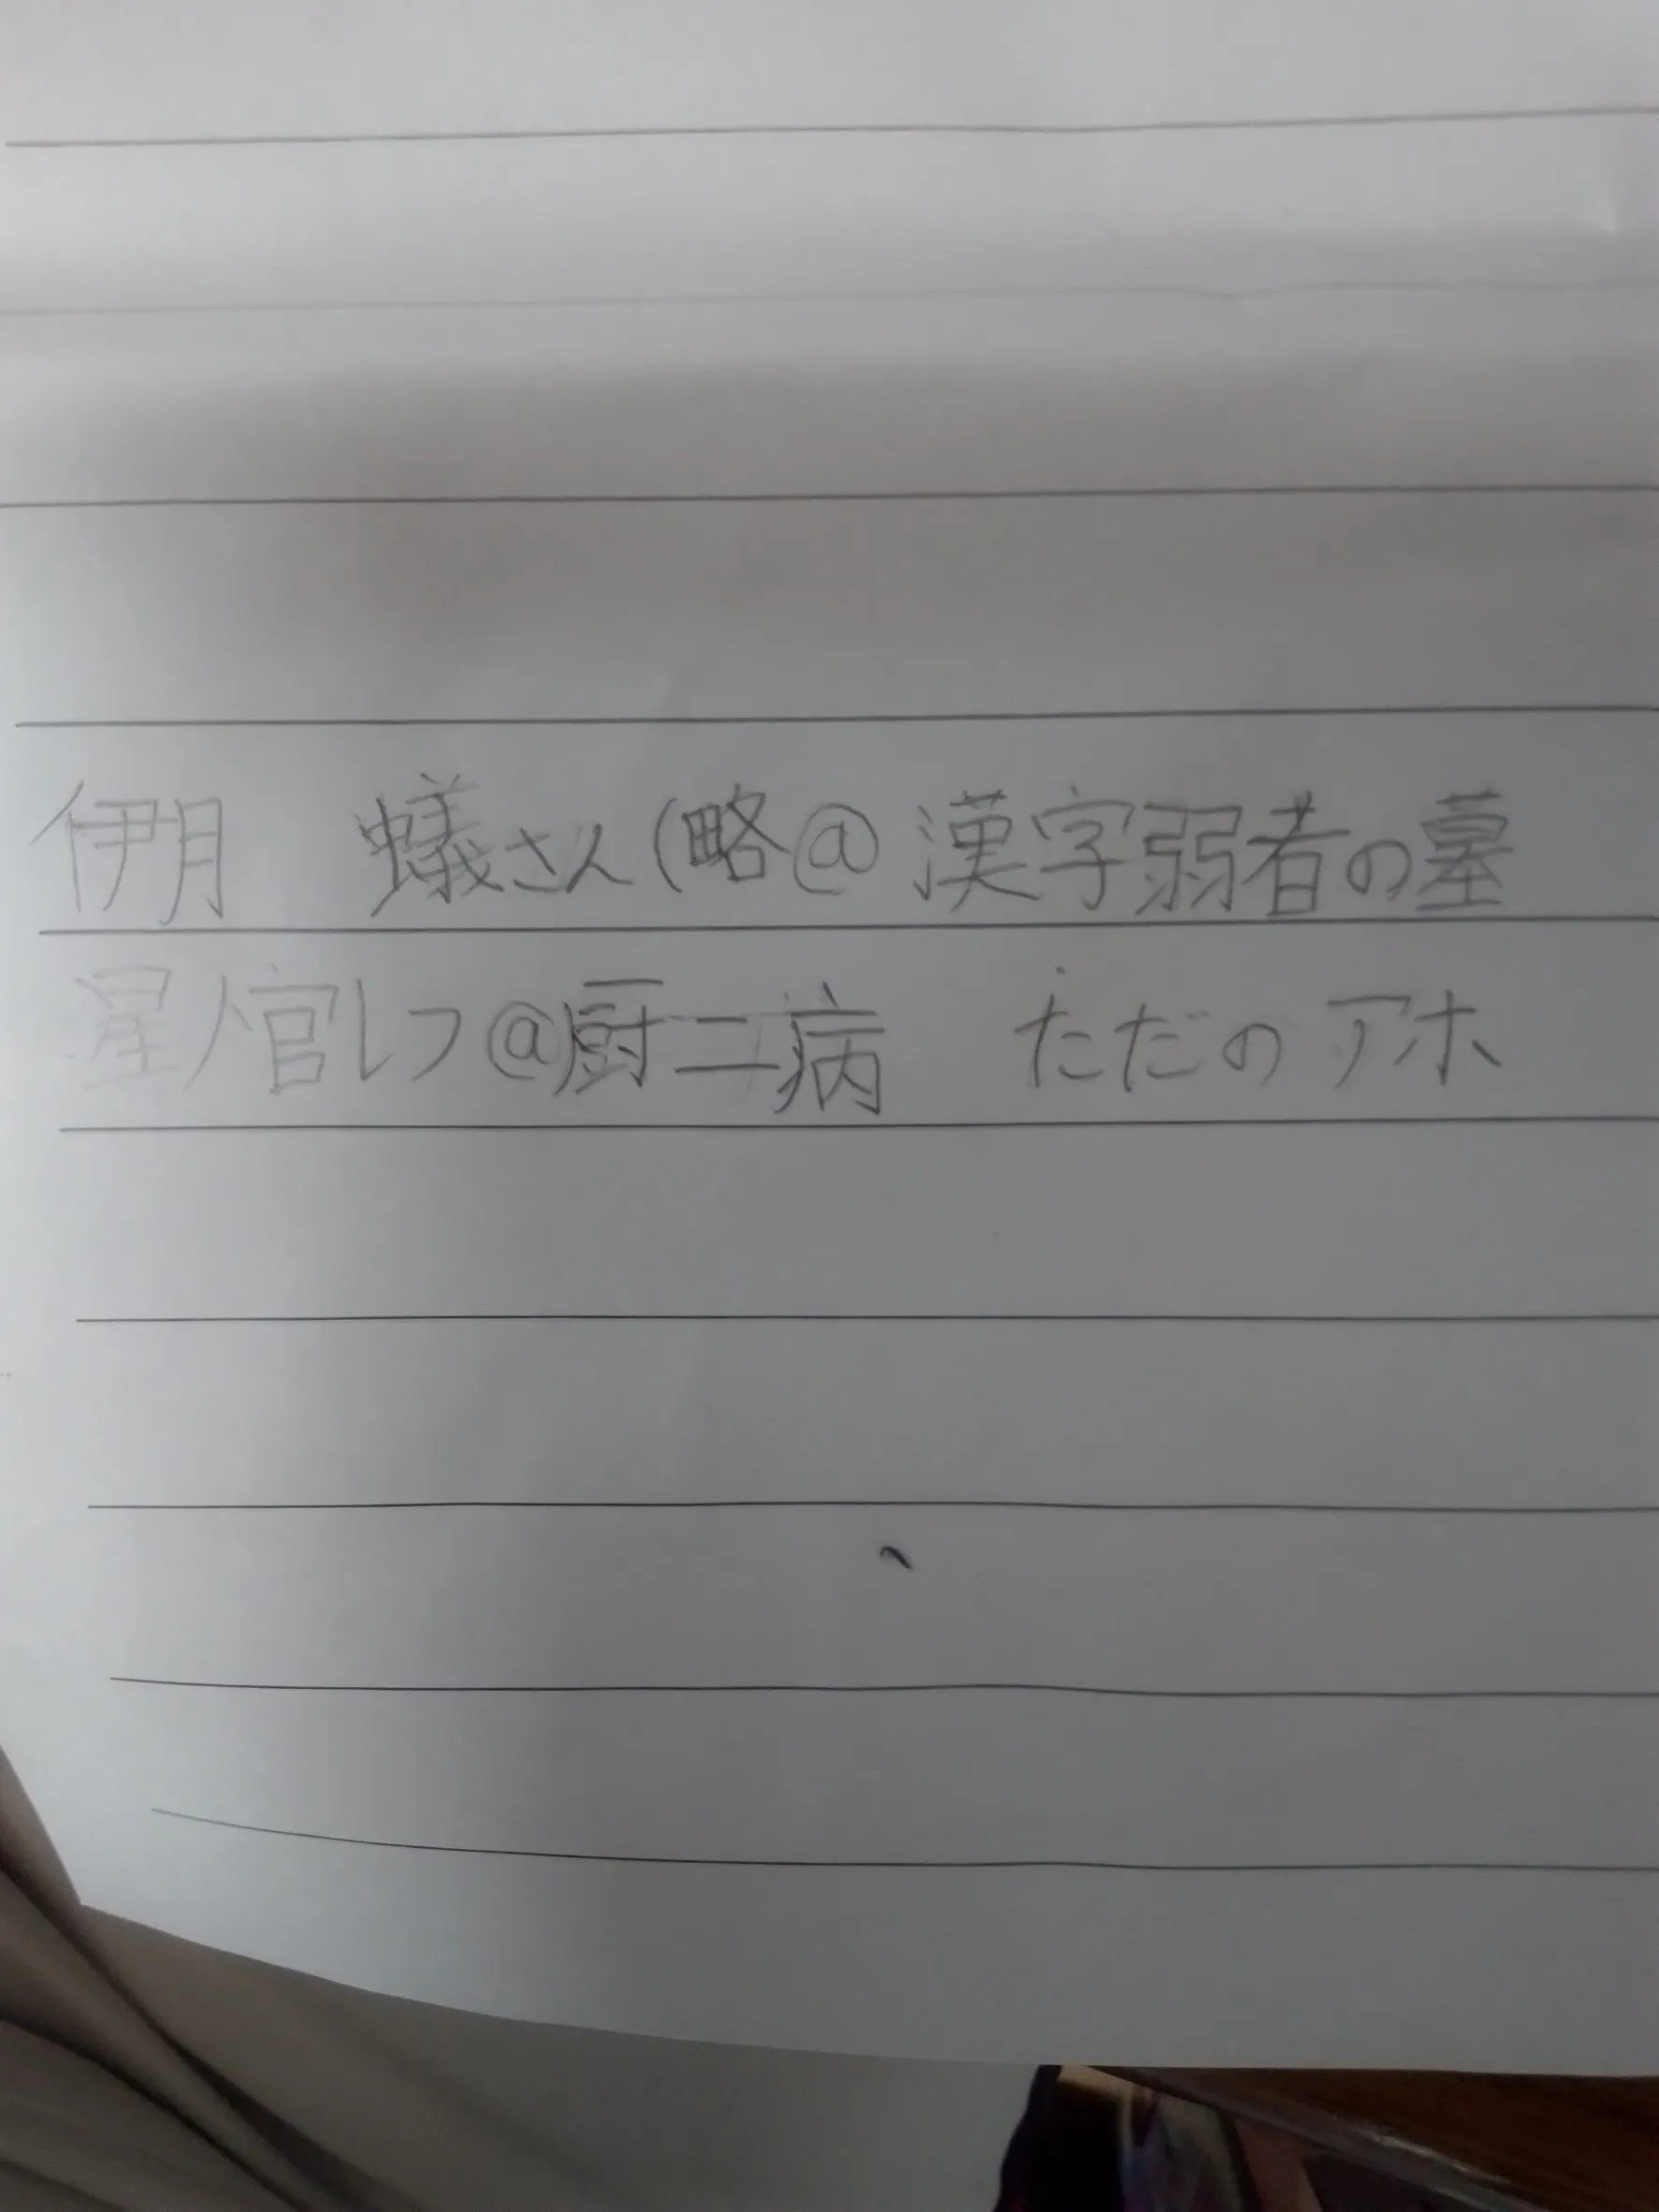 伊月 蟻さん(略@漢字弱者の墓
星ノ宮レフ@厨二病 ただのアホ